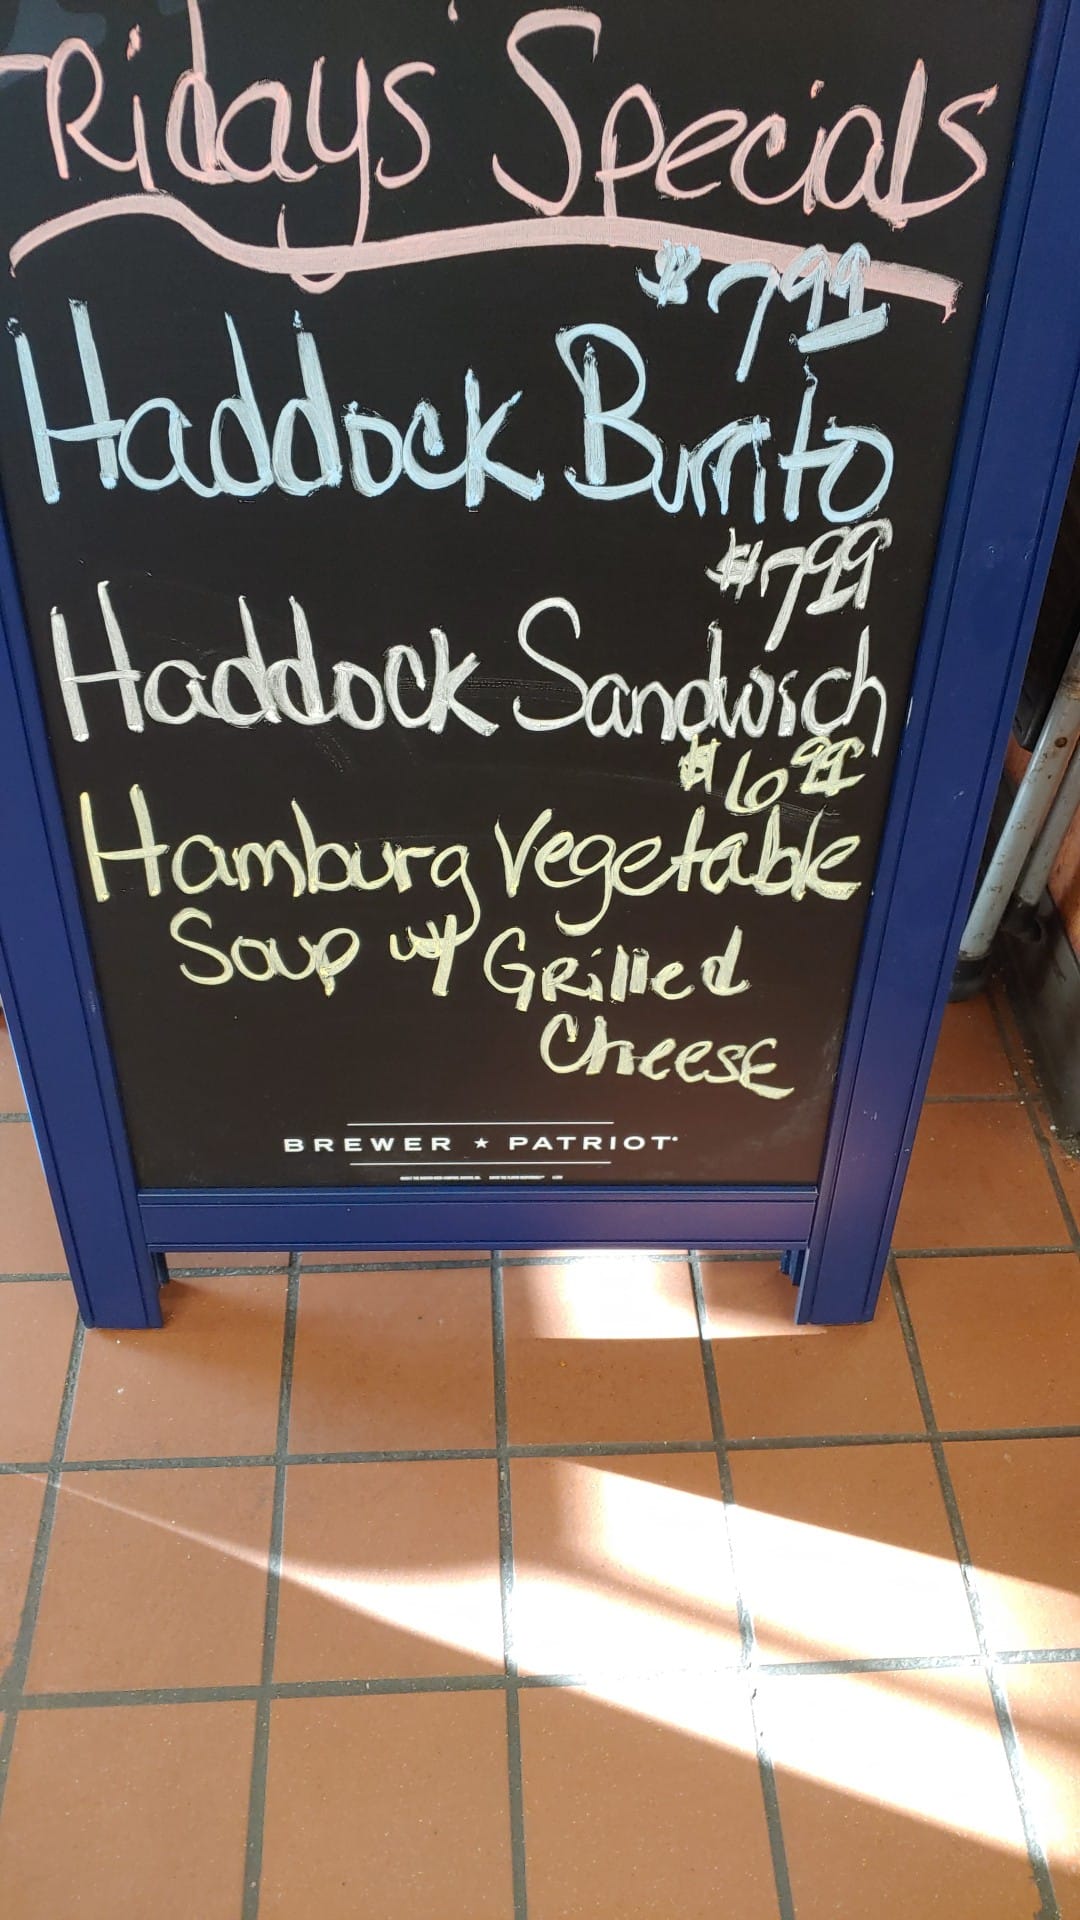 Fridays' Specials
$7.99
Haddock Burrito
$7.99
Haddock Sandwich
$6.99
Hamburg Vegetable
Soup w/ Grilled
Cheese
BREWER ★ PATRIOT